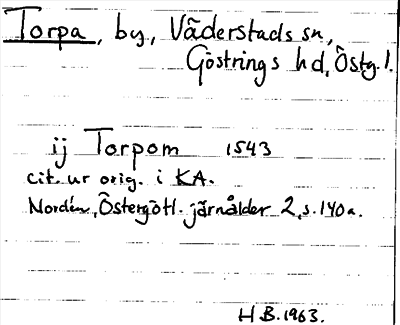 Torpa, by, Väderstads sn,
Göstrings hd, Östg. l.
ij Torpom 1543
cit. ur orig. i KA.
Nordén, Östergötl. järnålder 2, s. 140a.
H B. 1963.